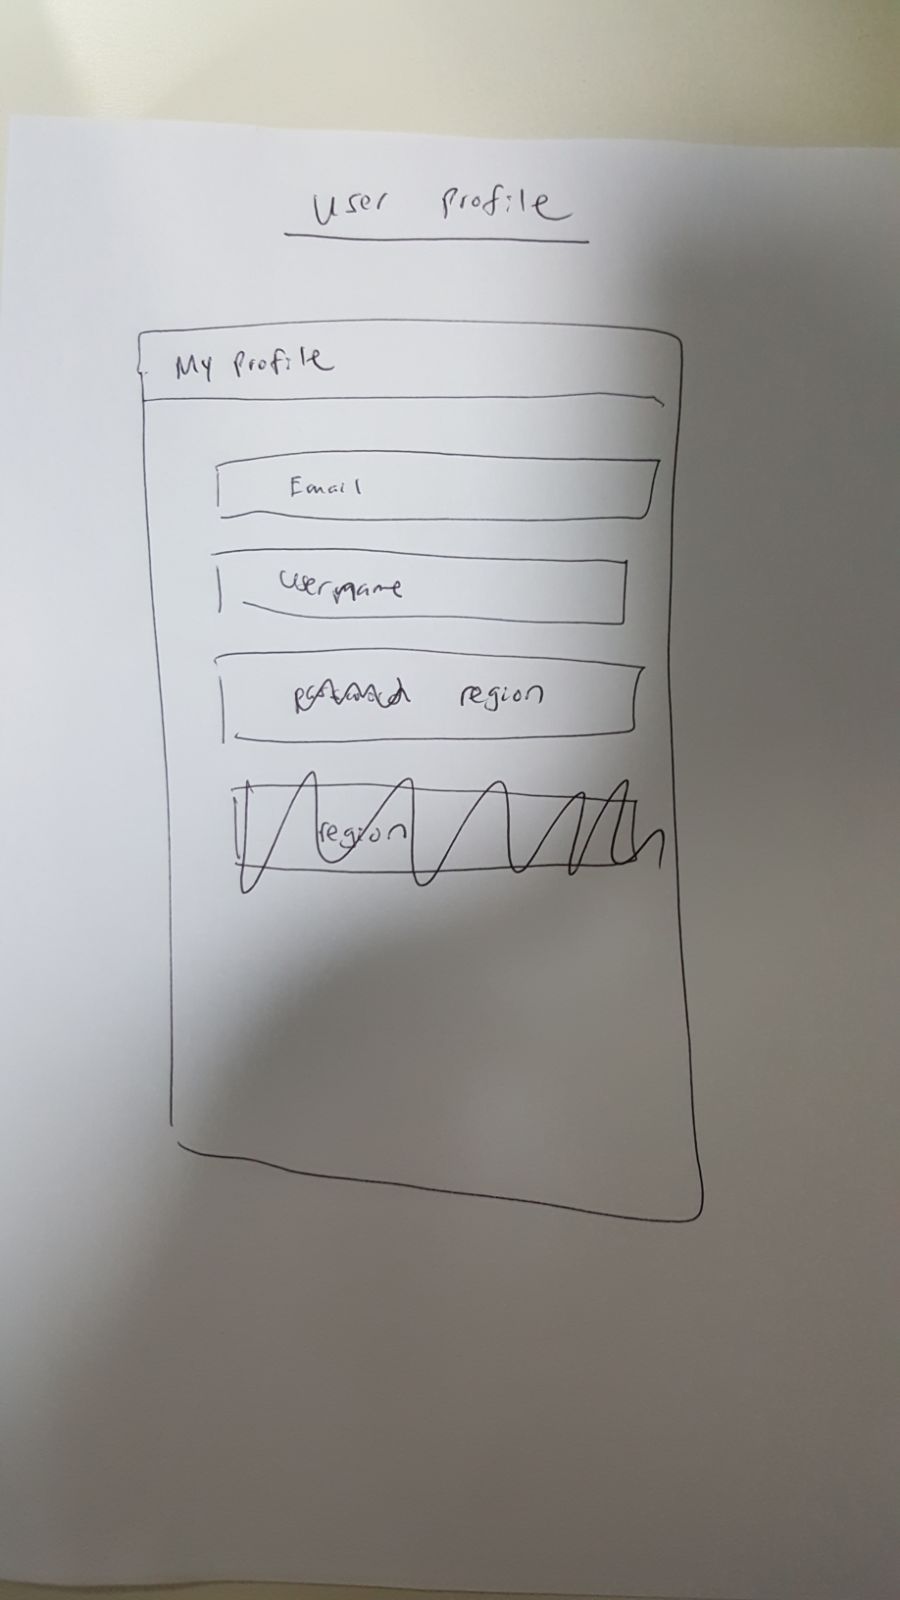 User Profile
My Profile
Email
Username
region
region